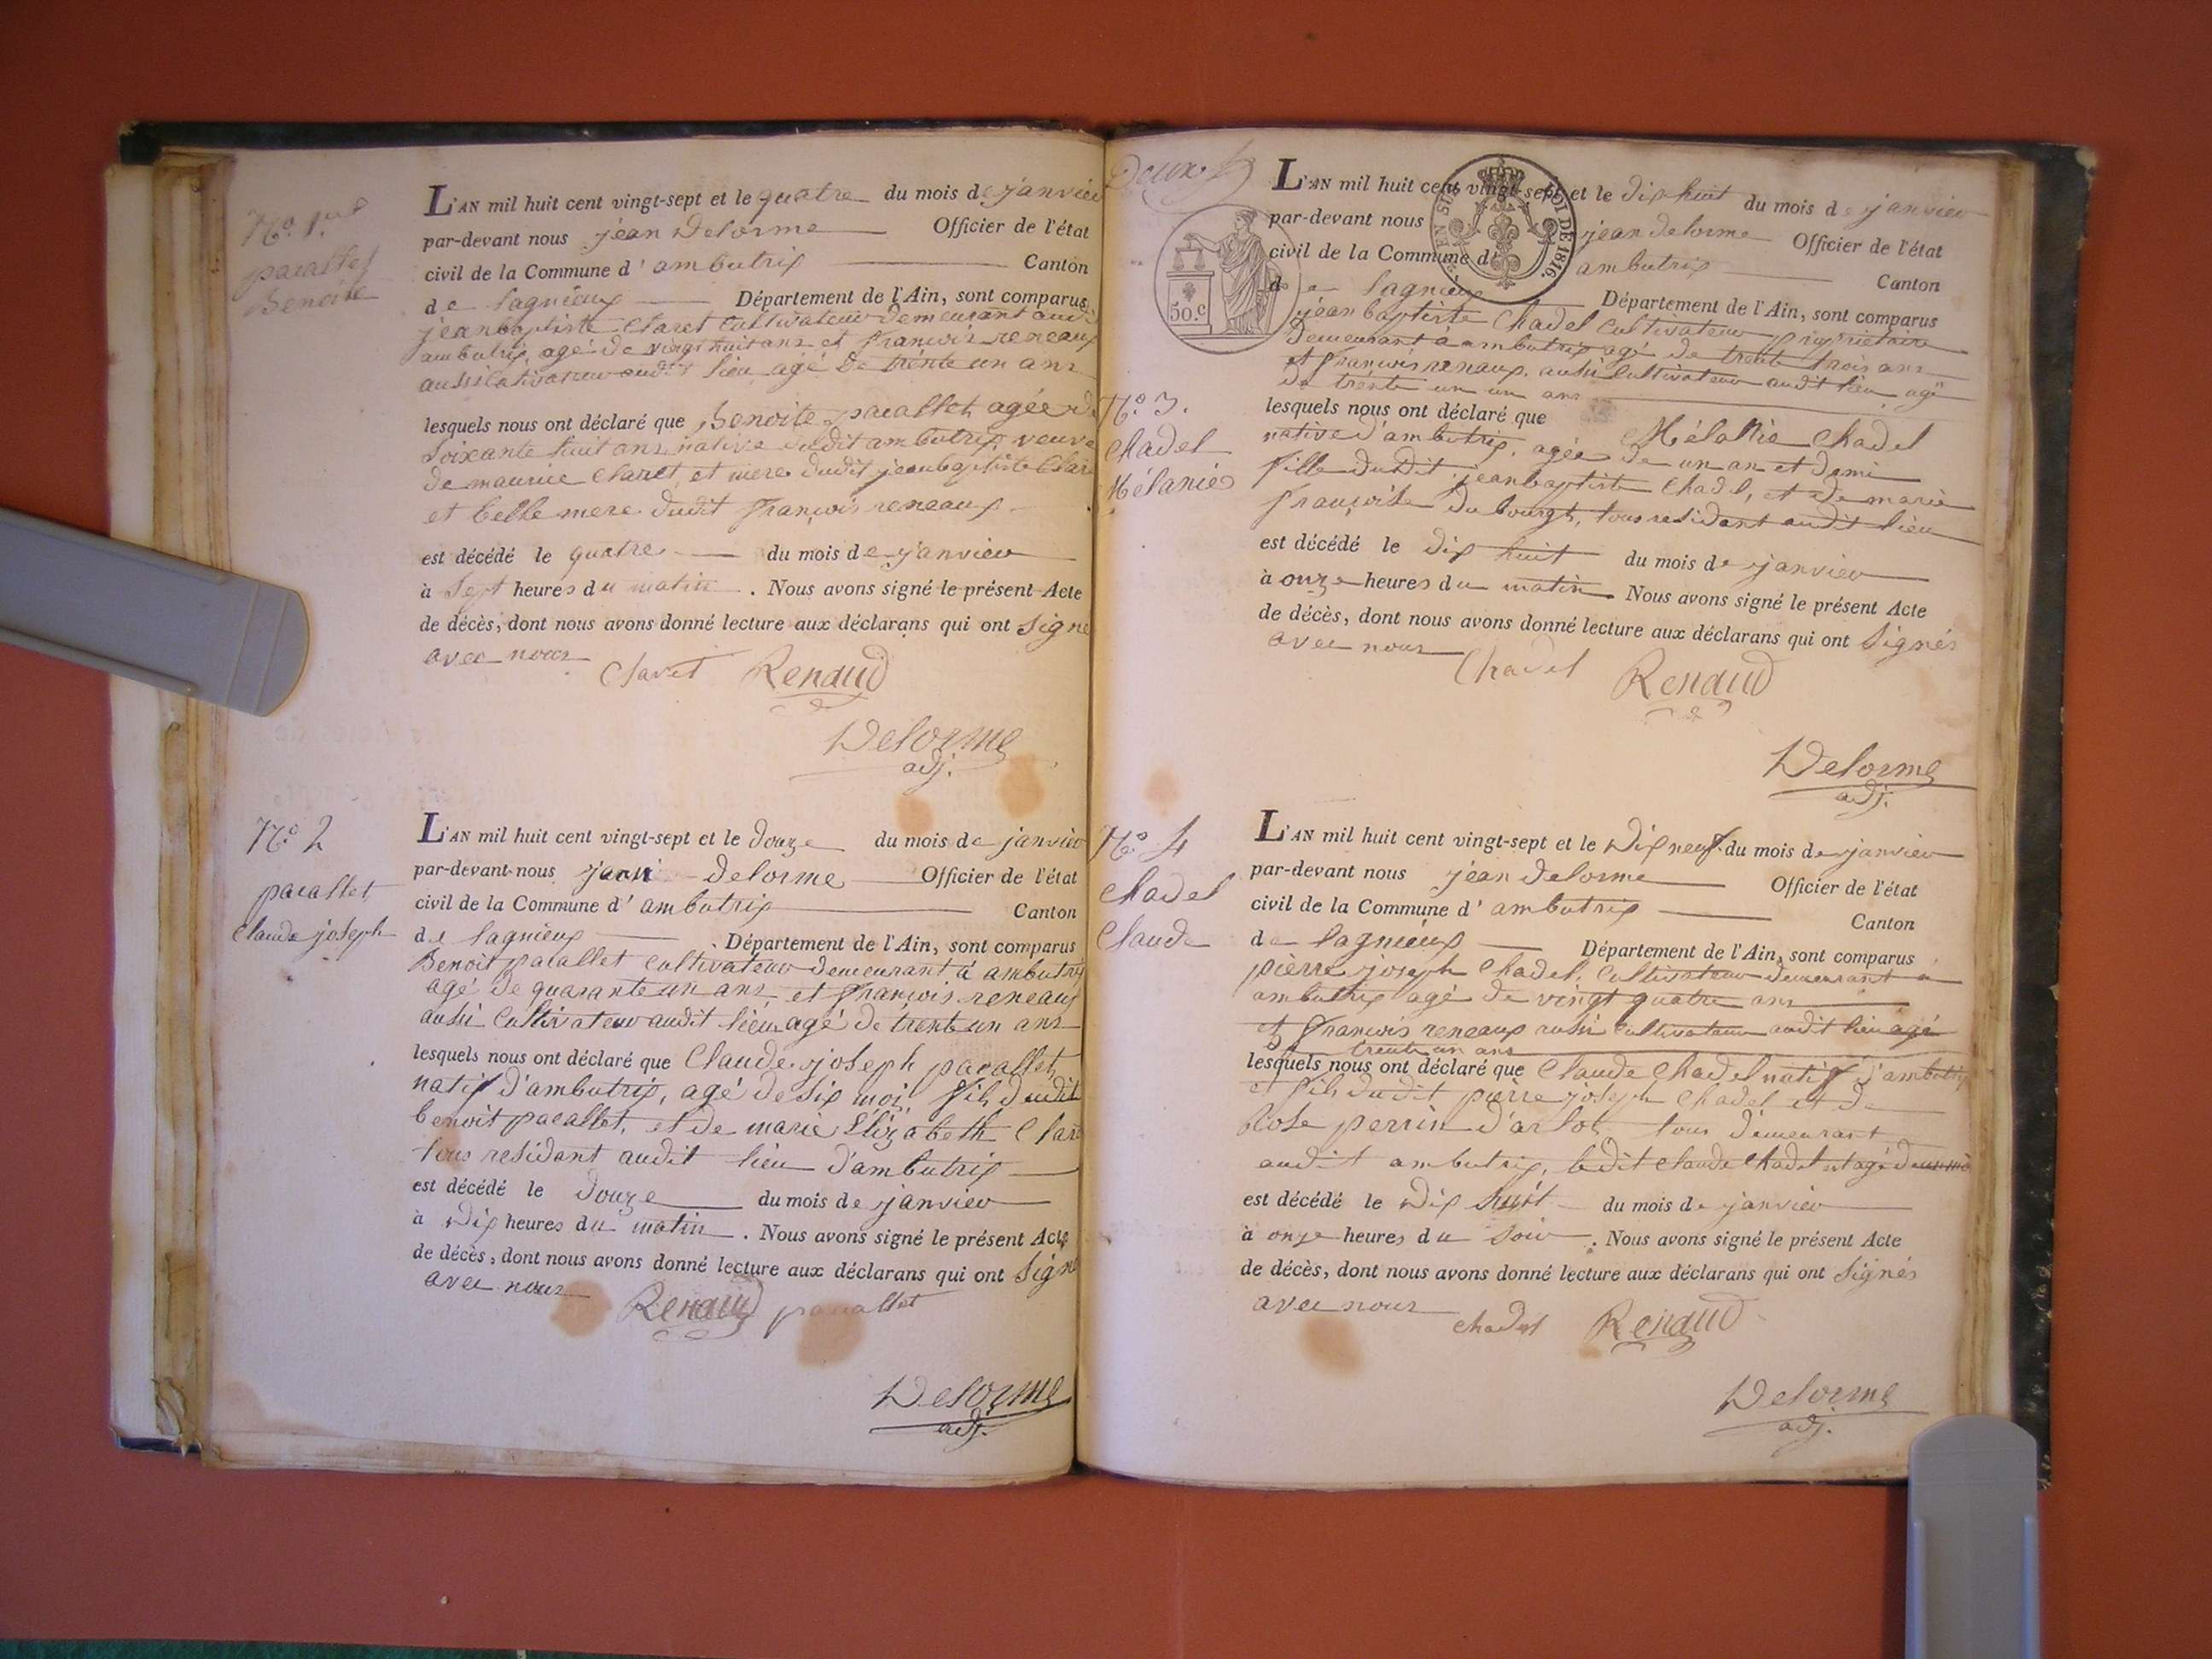 N.º 1.er
pacallet
Benoite
L'AN mil huit cent vingt-sept et le quatre du mois de janvier
par-devant nous jean Delorme Officier de l'état
civil de la Commune d'ambutrix Canton
de lagnieux Département de l'Ain, sont comparus
jean baptiste Claret Cultivateur demeurant audit
ambutrix, agé de vingt huit ans et françois reneaux
aussi cultivateur audit lieu, agé de trente un ans
lesquels nous ont déclaré que Benoite pacallet, agée de
Soixante huit ans native dudit ambutrix, veuve
de maurice Claret, et mere dudit jean baptiste Claret
et belle mere dudit françois reneaux
est décédé le quatre du mois de janvier
à Sept heures du matin. Nous avons signé le présent Acte
de décès, dont nous avons donné lecture aux déclarans qui ont Signé
avec nous
Claret Renaud
Delorme
adj.
N.º 2
pacallet
Claude joseph
L'AN mil huit cent vingt-sept et le douze du mois de janvier
par-devant nous jean Delorme Officier de l'état
civil de la Commune d'ambutrix Canton
de lagnieux Département de l'Ain, sont comparus
Benoit pacallet Cultivateur demeurant à ambutrix
agé de quarante un ans, et françois reneaux
aussi Cultivateur audit lieu agé de trente un ans
lesquels nous ont déclaré que Claude joseph pacallet,
natif d'ambutrix, agé de Six mois, fils dudit
benoit pacallet, et de marie Elizabeth Claret
tous residant audit lieu d'ambutrix
est décédé le douze du mois de janvier
à Dix heures du matin. Nous avons signé le présent Acte
de décès, dont nous avons donné lecture aux déclarans qui ont Signé
avec nous
Renaud pacallet
Delorme
adj.
Deux
N.º 3.
Chadel
Mélanie
50.c
EN SUS
LOI DE 1816.
L'AN mil huit cent vingt-sept et le dix huit du mois de janvier
par-devant nous jean delorme Officier de l'état
civil de la Commune d'ambutrix Canton
de lagnieux Département de l'Ain, sont comparus
jean baptiste Chadel Cultivateur proprietaire
Demeurant à ambutrix agé de trente trois ans
et françois reneaux, aussi Cultivateur audit lieu agé
de trente un ans
lesquels nous ont déclaré que Mélanie Chadel
native d'ambutrix, agée de un an et demi
fille dudit jean baptiste Chadel, et de marie
françoise du bourgt, tous residant audit lieu
est décédé le dix huit du mois de janvier
à onze heures du matin. Nous avons signé le présent Acte
de décès, dont nous avons donné lecture aux déclarans qui ont Signés
avec nous
Chadel Renaud
Delorme
adj.
N.º 4
Chadel
Claude
L'AN mil huit cent vingt-sept et le Dix neuf du mois de janvier
par-devant nous jean delorme Officier de l'état
civil de la Commune d'ambutrix Canton
de lagnieux Département de l'Ain, sont comparus
pierre joseph Chadel, Cultivateur demeurant à
ambutrix agé de vingt quatre ans
et françois reneaux aussi Cultivateur audit lieu agé
trente un ans
lesquels nous ont déclaré que Claude Chadel natif d'ambutrix
et fils dudit pierre joseph Chadel et de
Rose perrin d'arlot tous demeurant
audit ambutrix, ledit Claude Chadel est agé d'un mois
est décédé le Dix huit du mois de janvier
à onze heures du Soir. Nous avons signé le présent Acte
de décès, dont nous avons donné lecture aux déclarans qui ont Signés
avec nous
Chadel Renaud
Delorme
adj.